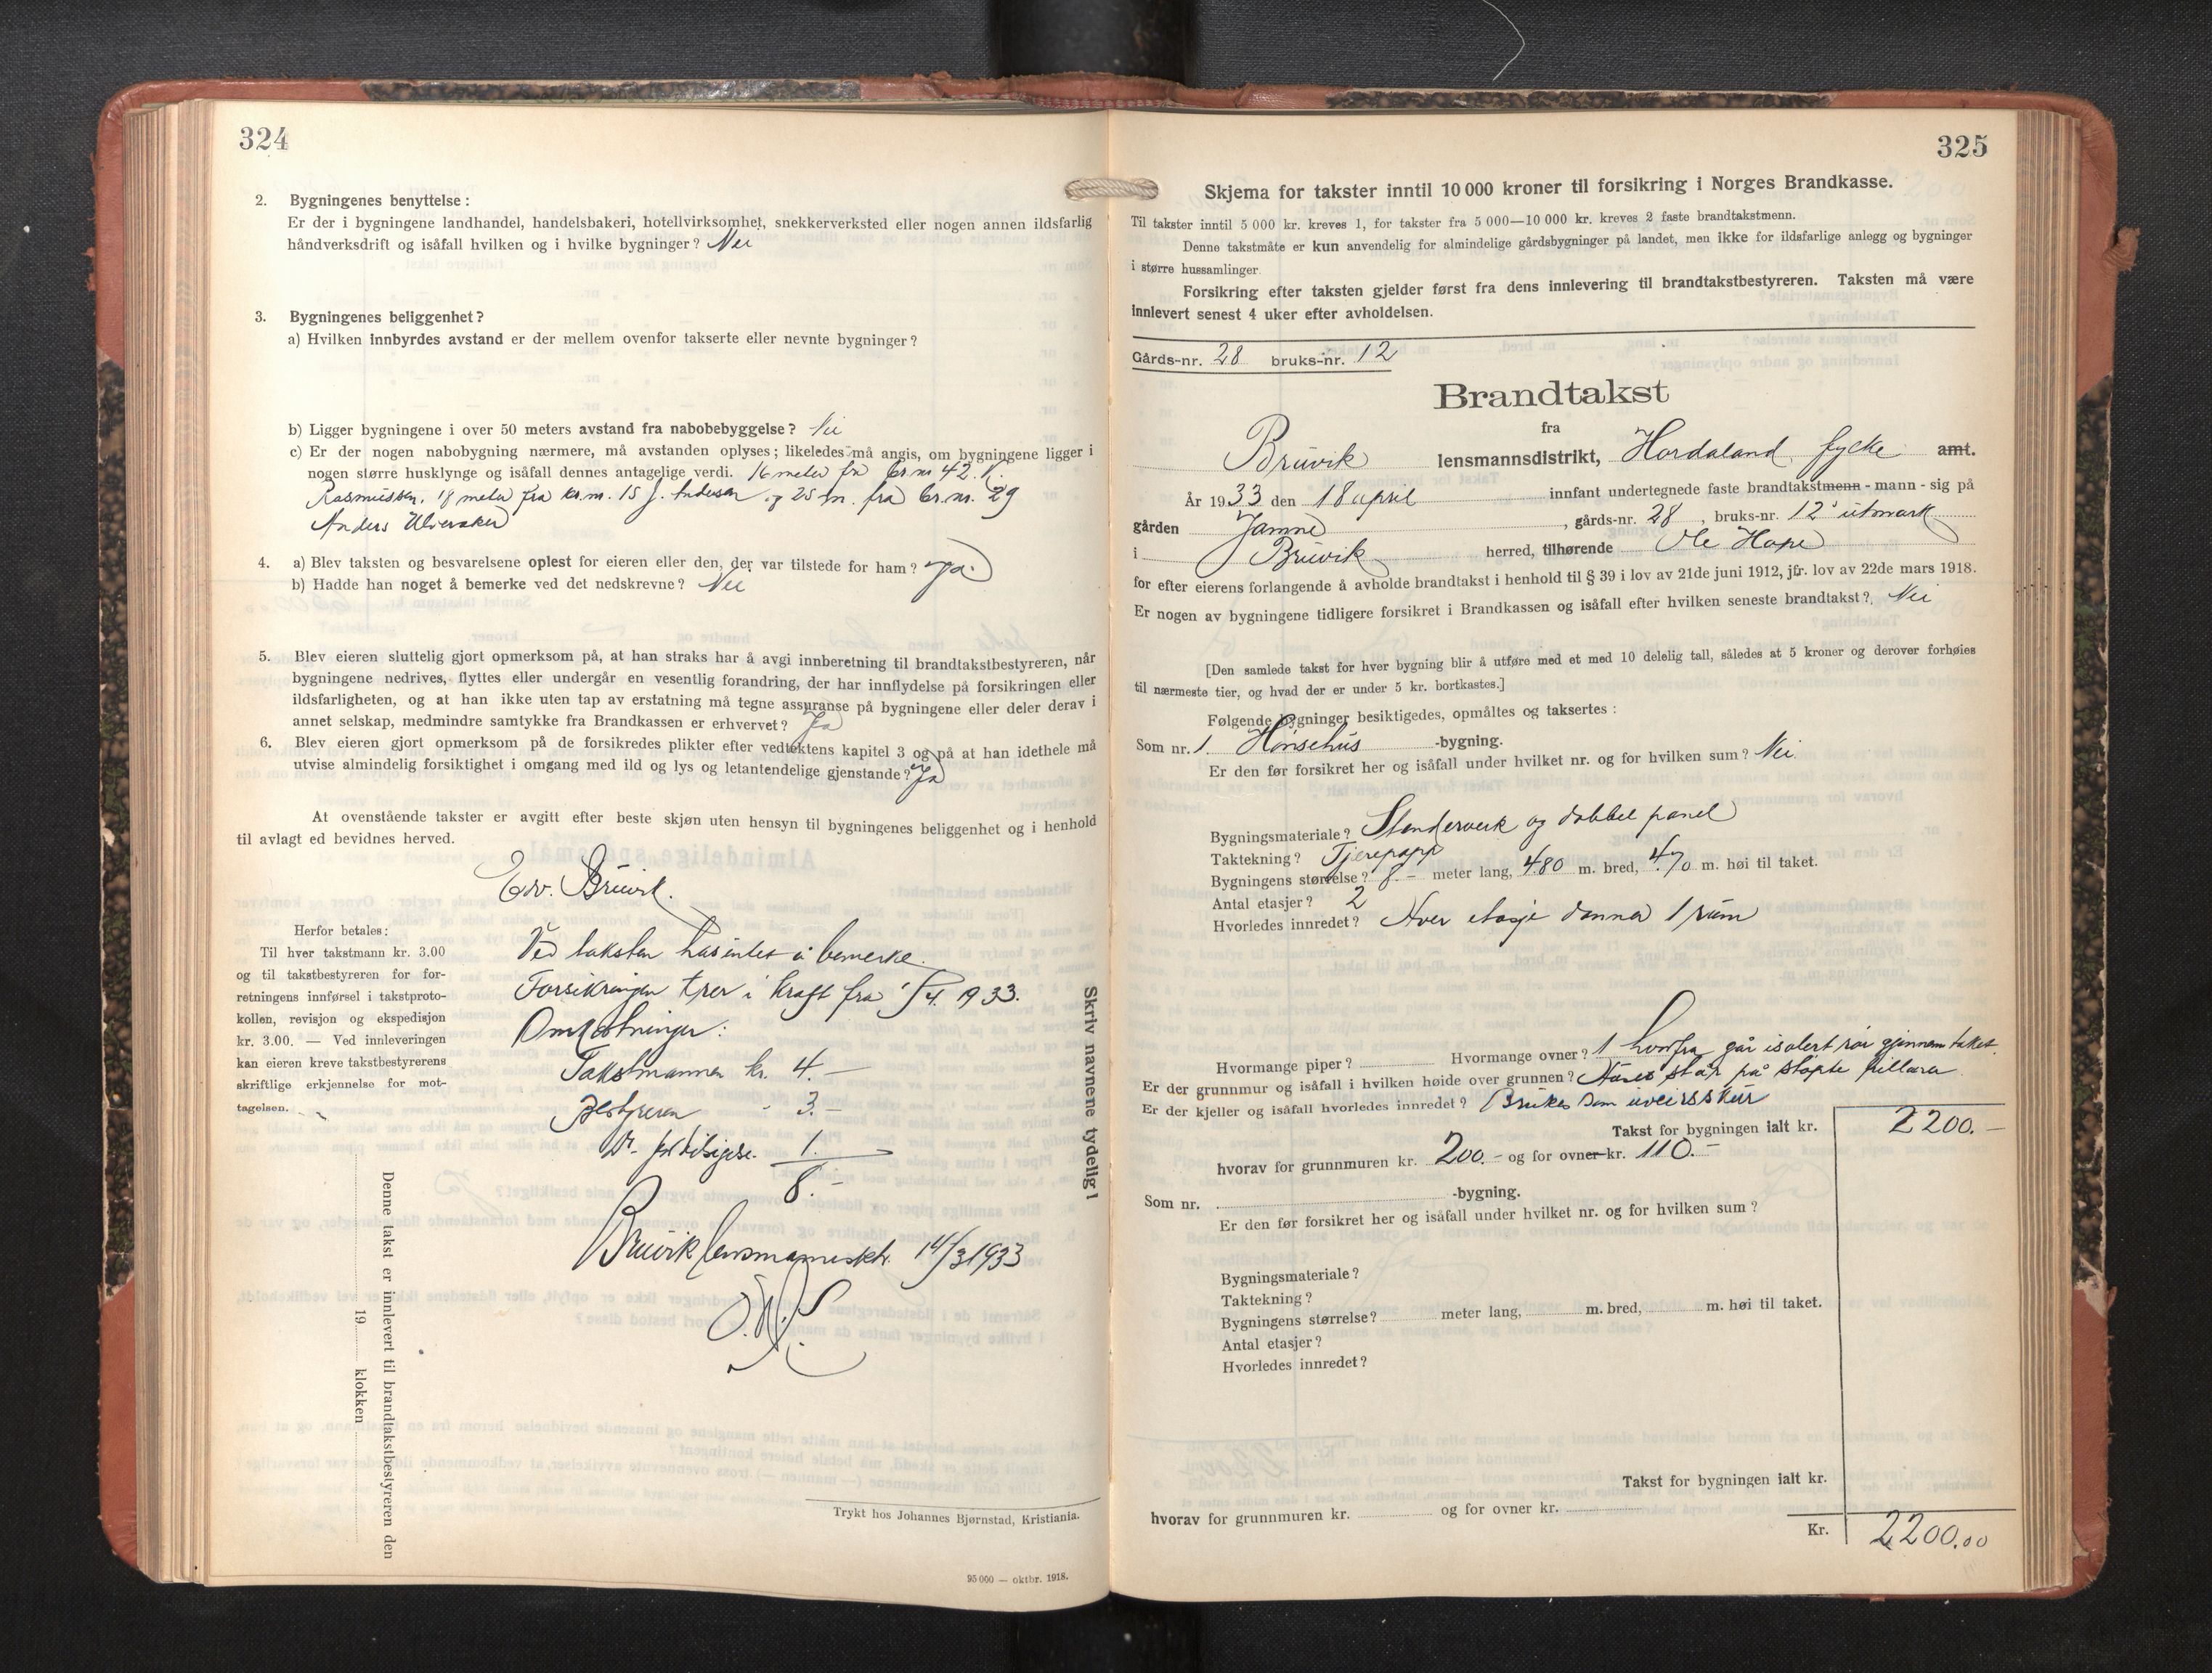 324
2. Bygningenes benyttelse:
Er der i bygningene landhandel, handelsbakeri, hotellvirksomhet, snekkerverksted eller nogen annen ildsfarlig
håndverksdrift og isåfall hvilken og i hvilke bygninger? Nei
3. Bygningenes beliggenhet?
a) Hvilken innbyrdes avstand er der mellem ovenfor takserte eller nevnte bygninger?
b) Ligger bygningene i over 50 meters avstand fra nabobebyggelse? Nei
c) Er der nogen nabobygning nærmere, må avstanden oplyses; likeledes må angis, om bygningene ligger i
nogen større husklynge og isåfall dennes antagelige verdi. 16 meter fra br.nr 42. K.
Rasmussen, 18 meter fra br.nr. 15 J. Andersen og 25 m. fra br.nr. 29
Anders Ulveraker
4. a) Blev taksten og besvarelsene oplest for eieren eller den, der var tilstede for ham? Ja.
b) Hadde han noget å bemerke ved det nedskrevne? Nei
5. Blev eieren sluttelig gjort opmerksom på, at han straks har å avgi innberetning til brandtakstbestyreren, når
bygningene nedrives, flyttes eller undergår en vesentlig forandring, der har innflydelse på forsikringen eller
ildsfarligheten, og at han ikke uten tap av erstatning må tegne assuranse på bygningene eller deler derav i
annet selskap, medmindre samtykke fra Brandkassen er erhvervet? Ja
6. Blev eieren gjort opmerksom på de forsikredes plikter efter vedtektens kapitel 3 og på at han idethele må
utvise almindelig forsiktighet i omgang med ild og lys og letantendelige gjenstande? Ja
At ovenstående takster er avgitt efter beste skjøn uten hensyn til bygningenes beliggenhet og i henhold
til avlagt ed bevidnes herved.
Edv. Bruvik.
Herfor betales:
Til hver takstmann kr. 3.00
og til takstbestyreren for for-
retningens innførsel i takstproto-
kollen, revisjon og ekspedisjon
kr. 3.00. — Ved innleveringen
kan eieren kreve takstbestyrerens
skriftlige erkjennelse for mot-
tagelsen.
Ved taksten has intet å bemerke.
Forsikringen trer i kraft fra 1/4. 1933.
Omkostninger:
Takstmannen kr. 4.—
Bestyreren - 3.—
Do. 1.
8.—
Bruvik lensmannsktr. 14/3 1933
Skriv navnene tydelig!
Denne takst er innlevert til brandtakstbestyreren den
19 klokken
Trykt hos Johannes Bjørnstad, Kristiania.
95 000 — oktbr. 1918.
325
Skjema for takster inntil 10 000 kroner til forsikring i Norges Brandkasse.
Til takster inntil 5 000 kr. kreves 1, for takster fra 5 000—10 000 kr. kreves 2 faste brandtakstmenn.
Denne takstmåte er kun anvendelig for almindelige gårdsbygninger på landet, men ikke for ildsfarlige anlegg og bygninger
i større hussamlinger.
Forsikring efter taksten gjelder først fra dens innlevering til brandtakstbestyreren. Taksten må være
innlevert senest 4 uker efter avholdelsen.
Gårds-nr. 28 bruks-nr. 12
Brandtakst
fra
Bruvik lensmannsdistrikt, Hordaland fylke amt.
År 1933 den 18 april innfant undertegnede faste brandtakstmenn - mann - sig på
gården Jamne, gårds-nr. 28, bruks-nr. 12 utmark
i Bruvik herred, tilhørende Ole Hope
for efter eierens forlangende å avholde brandtakst i henhold til § 39 i lov av 21de juni 1912, jfr. lov av 22de mars 1918.
Er nogen av bygningene tidligere forsikret i Brandkassen og isåfall efter hvilken seneste brandtakst? Nei
[Den samlede takst for hver bygning blir å utføre med et med 10 delelig tall, således at 5 kroner og derover forhøies
til nærmeste tier, og hvad der er under 5 kr. bortkastes.]
Følgende bygninger besiktigedes, opmåltes og taksertes:
Som nr. 1. Hønsehus -bygning.
Er den før forsikret her og isåfall under hvilket nr. og for hvilken sum? Nei
Bygningsmateriale? Stenderverk og dobbel panel
Taktekning? Tjærepapp
Bygningens størrelse? 8.- meter lang, 4.80 m. bred, 4.70 m. høi til taket.
Antal etasjer? 2
Hvorledes innredet? Hver etasje danner 1 rum
Hvormange piper? Hvormange ovner? 1 hvorfra går isolert rør gjennem taket.
Er der grunnmur og isåfall i hvilken høide over grunnen? Huset står på støpte pillarer
Er der kjeller og isåfall hvorledes innredet? Brukes som uveirsskur
Takst for bygningen ialt kr. 2200.—
hvorav for grunnmuren kr. 200.- og for ovner kr. 110.—
Som nr. -bygning.
Er den før forsikret her og isåfall under hvilket nr. og for hvilken sum?
Bygningsmateriale?
Taktekning?
Bygningens størrelse? meter lang, m. bred, m. høi til taket.
Antal etasjer?
Hvorledes innredet?
Takst for bygningen ialt kr.
hvorav for grunnmuren kr. og for ovner kr.
Kr. 2200.00